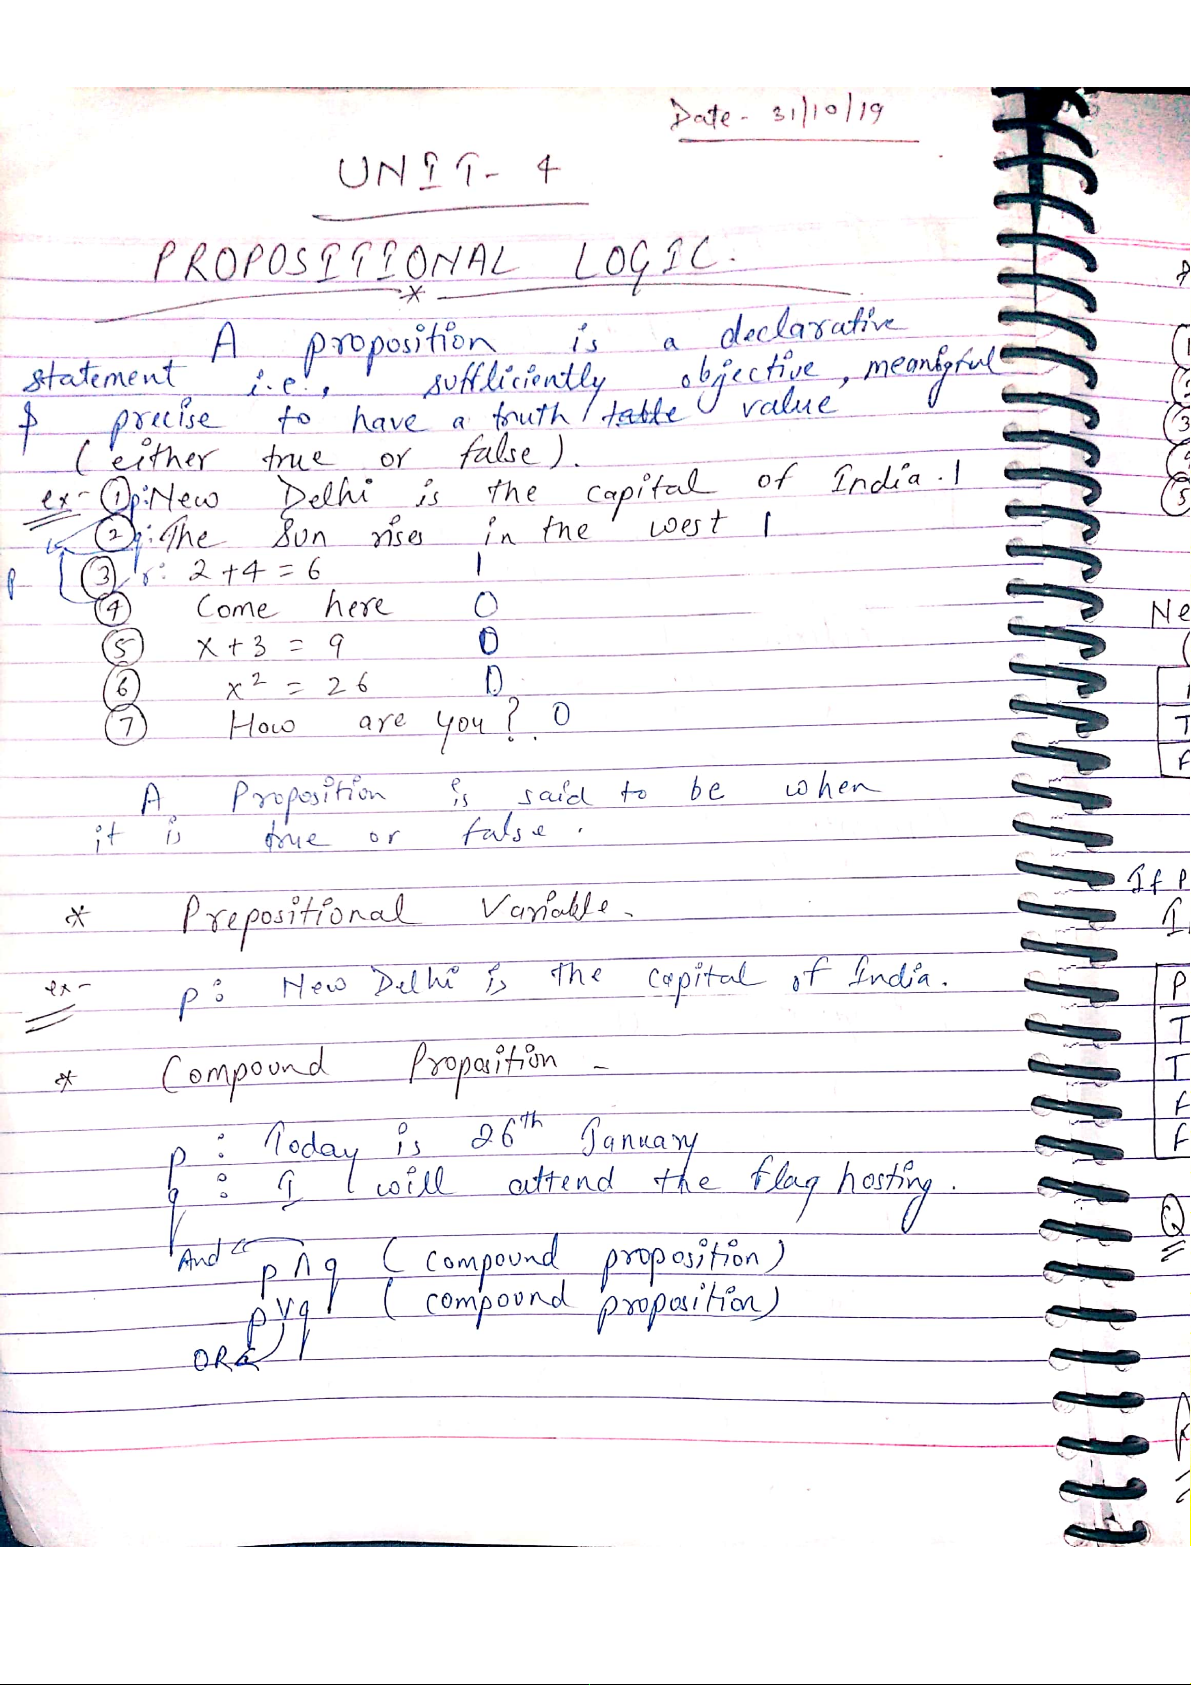 Date - 31/10/19
UNIT - 4
PROPOSITIONAL LOGIC.
*
A proposition is a declarative
statement i.e., sufficiently objective, meaningful
& precise to have a truth / table value
(either true or false).
ex- ① p: New Delhi is the capital of India. 1
② q: The Sun rises in the west 1
p ③ r: 2 + 4 = 6 1
④ Come here 0
⑤ x + 3 = 9 0
⑥ x² = 26 0
⑦ How are you? 0
A Proposition is said to be when
it is true or false.
* Prepositional Variable.
ex- p: New Delhi is the capital of India.
* Compound Proposition -
p : Today is 26th January
q : I will attend the flag hosting.
And p ∧ q (compound proposition)
p ∨ q (compound proposition)
OR
①
②
③
⑤
Ne
T
F
If P
P
T
T
F
F
Q